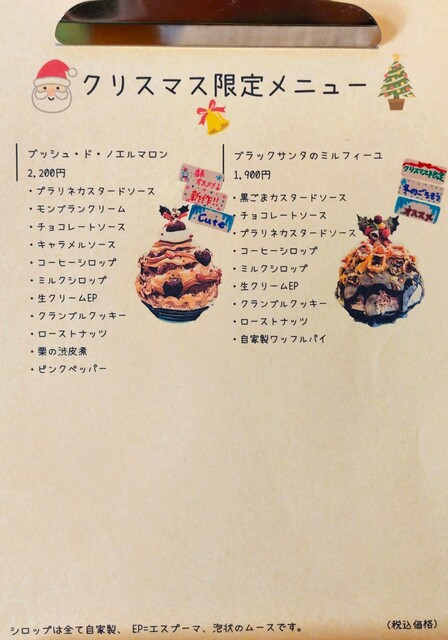 クリスマス限定メニュー
ブッシュ・ド・ノエルマロン
2,200円
・プラリネカスタードソース
・モンブランクリーム
・チョコレートソース
・キャラメルソース
・コーヒーシロップ
・ミルクシロップ
・生クリームEP
・クランブルクッキー
・ローストナッツ
・栗の渋皮煮
・ピンクペッパー
オススメ
新作!!
Cute!
ブラックサンタのミルフィーユ
1,900円
・黒ごまカスタードソース
・チョコレートソース
・プラリネカスタードソース
・コーヒーシロップ
・ミルクシロップ
・生クリームEP
・クランブルクッキー
・ローストナッツ
・自家製ワッフルパイ
クリスマス限定
冬のごちそう
オススメ
シロップは全て自家製、 EP=エスプーマ、泡状のムースです。
(税込価格)